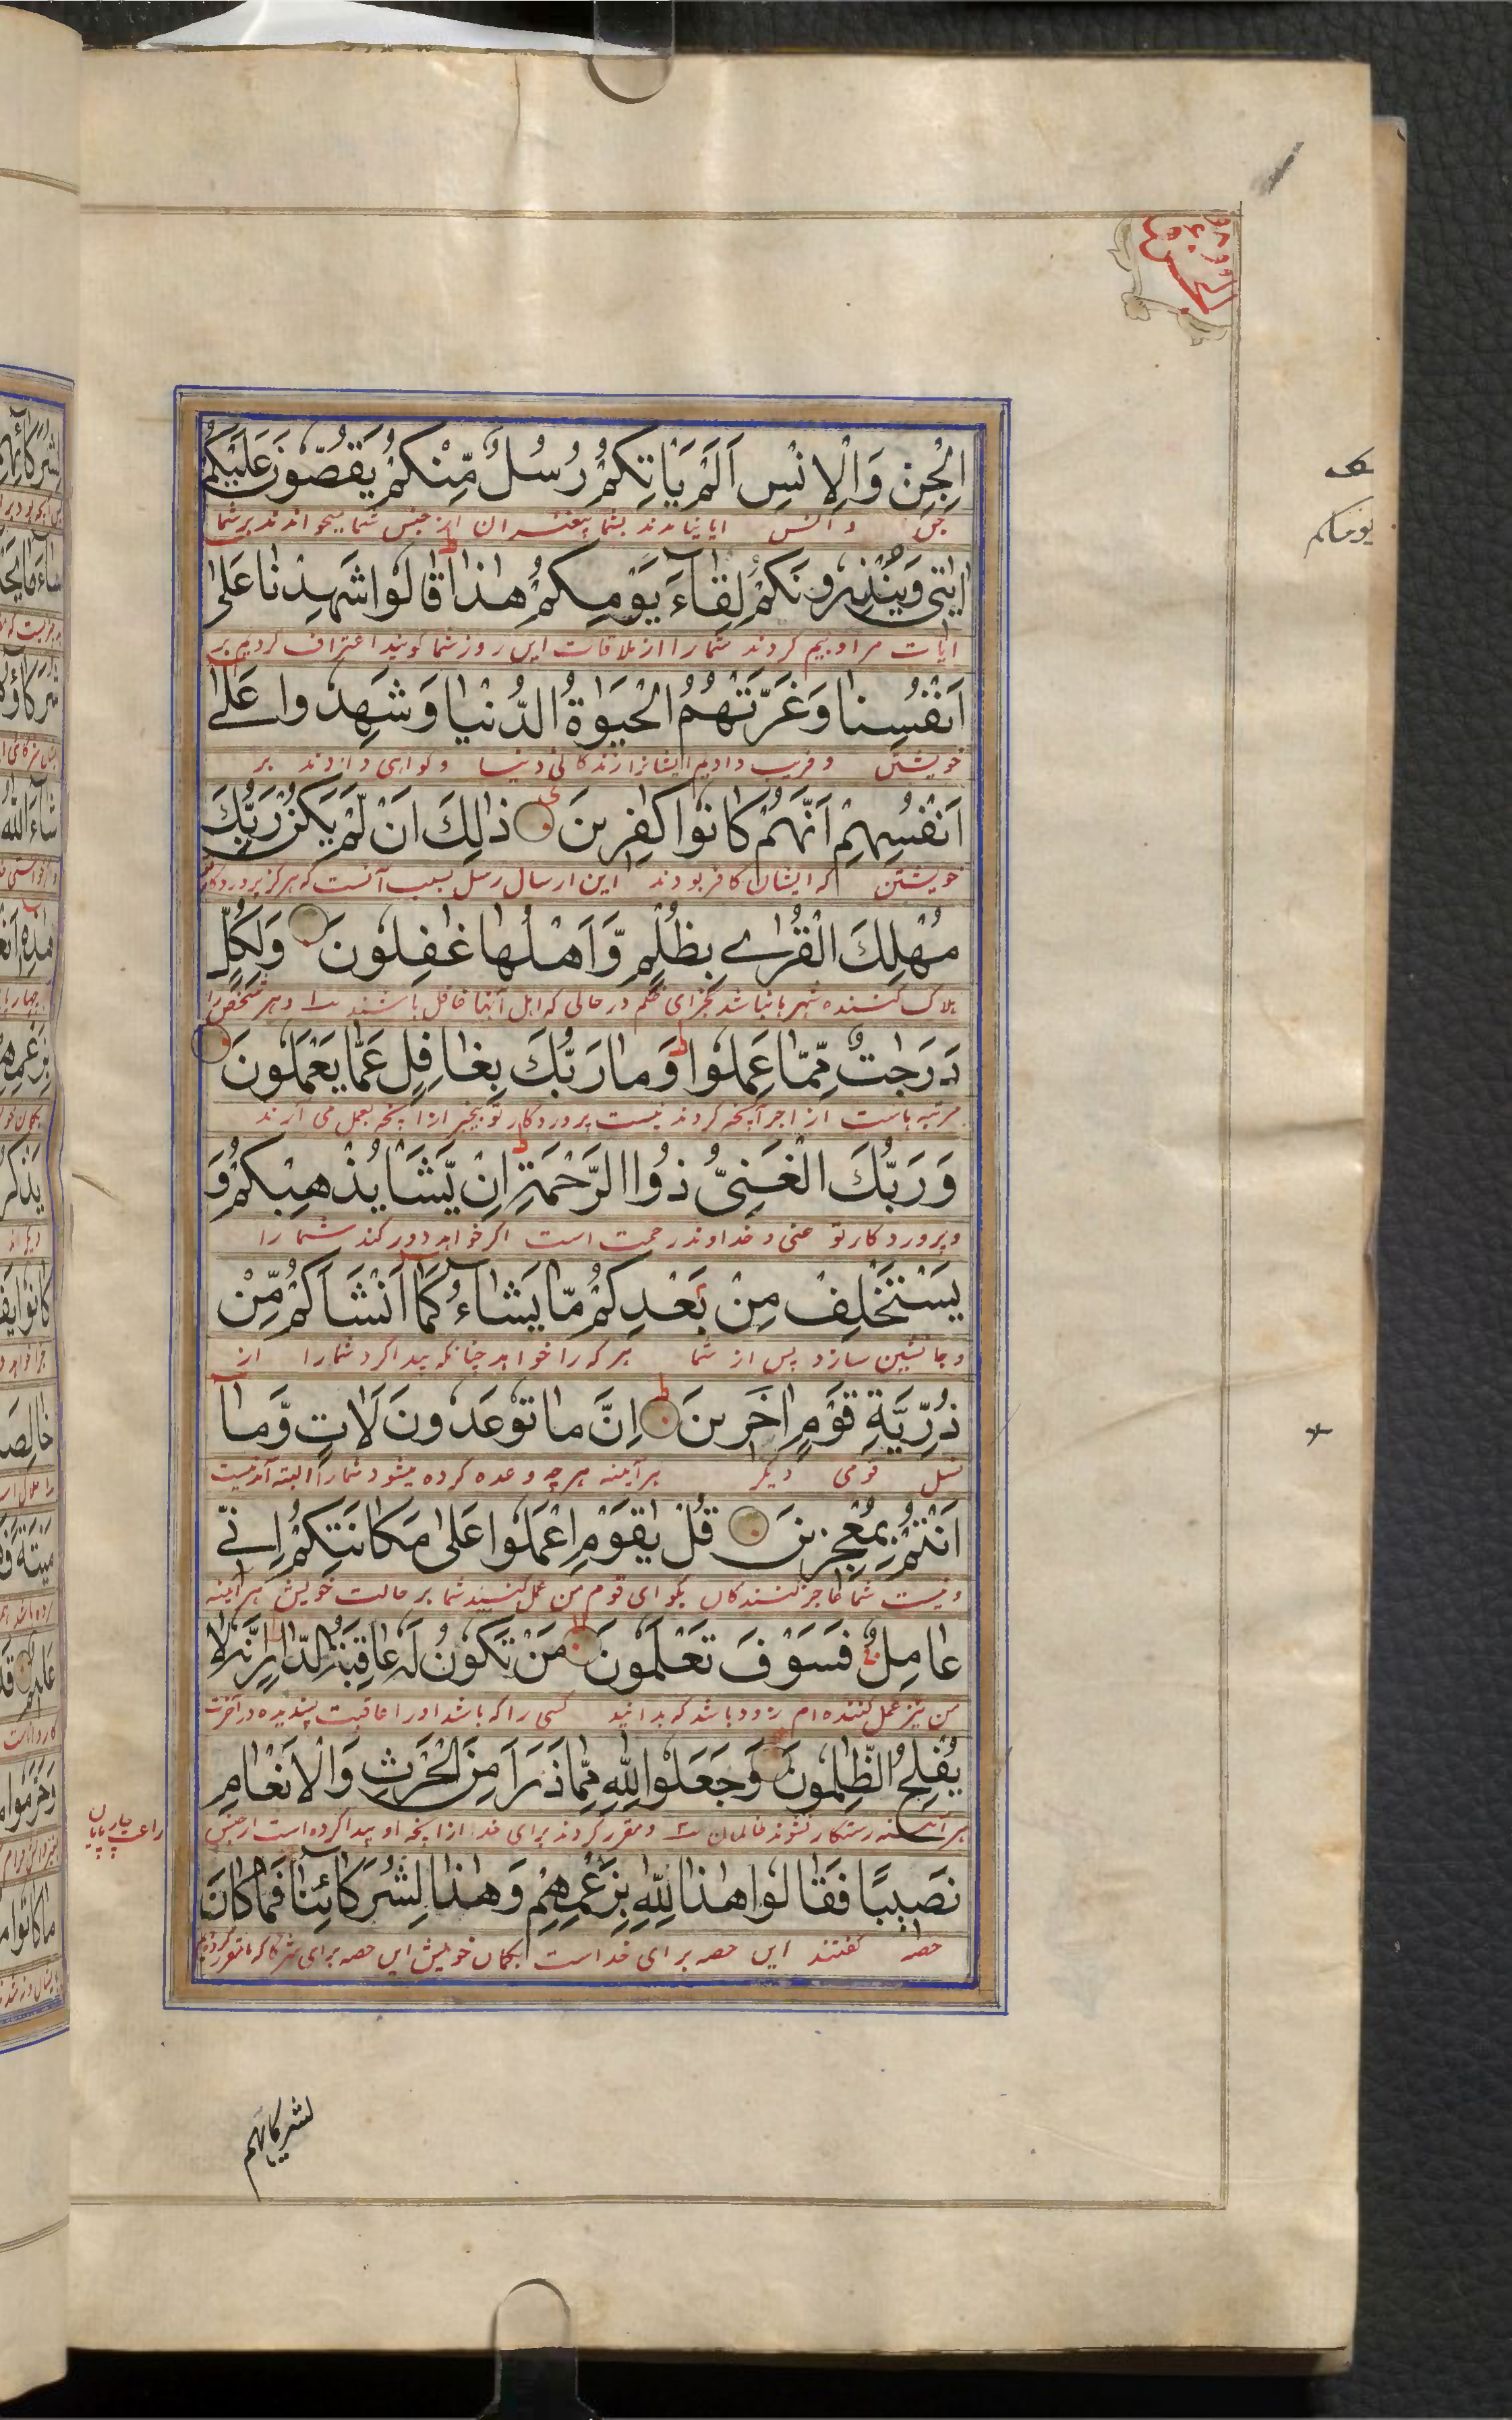 الْجِنِّ وَالْاِنْسِ اَلَمْ يَاْتِكُمْ رُسُلٌ مِّنْكُمْ يَقُصُّوْنَ عَلَيْكُمْ
جن و انس ایا نیامدند بشما پیغمبران از جنس شما میخواندند برشما
اٰيٰتِيْ وَيُنْذِرُوْنَكُمْ لِقَآءَ يَوْمِكُمْ هٰذَا قَالُوْا شَهِدْنَا عَلٰى
ایات مرا و بیم کردند شما را از ملاقات این روز شما گویند اعتراف کردیم بر
اَنْفُسِنَا وَغَرَّتْهُمُ الْحَيٰوةُ الدُّنْيَا وَشَهِدُوْا عَلٰٓى
خویشتن و فریب داد ایشانرا زندگانی دنیا و گواهی دادند بر
اَنْفُسِهِمْ اَنَّهُمْ كَانُوْا كٰفِرِيْنَ ذٰلِكَ اَنْ لَّمْ يَكُنْ رَّبُّكَ
خویشتن که ایشان کافر بودند این ارسال رسل بسبب آنست که هرگز پروردگار
مُهْلِكَ الْقُرٰى بِظُلْمٍ وَّاَهْلُهَا غٰفِلُوْنَ وَلِكُلٍّ
هلاک کننده شهرها نباشد بجزای ظلم در حالی که اهل آنها غافل باشند و هر شخص را
دَرَجٰتٌ مِّمَّا عَمِلُوْا وَمَا رَبُّكَ بِغَافِلٍ عَمَّا يَعْمَلُوْنَ
مرتبه هاست از اجر آنچه کردند نیست پروردگار تو بیخبر از آنچه بعمل می آرند
وَرَبُّكَ الْغَنِيُّ ذُوا الرَّحْمَةِ اِنْ يَّشَاْ يُذْهِبْكُمْ وَ
و پروردگار تو غنی و خداوند رحمت است اگر خواهد دور کند شما را
يَسْتَخْلِفْ مِنْ بَعْدِكُمْ مَّا يَشَآءُ كَمَآ اَنْشَاَكُمْ مِّنْ
و جانشین سازد پس از شما هر که را خواهد چنانکه پیدا کرد شما را از
ذُرِّيَّةِ قَوْمٍ اٰخَرِيْنَ اِنَّ مَا تُوْعَدُوْنَ لَاٰتٍ وَّمَآ
نسل قومی دیگر هر آینه هر چه وعده کرده میشود شما را البته آمدنیست
اَنْتُمْ بِمُعْجِزِيْنَ قُلْ يٰقَوْمِ اعْمَلُوْا عَلٰى مَكَانَتِكُمْ اِنِّيْ
و نیست شما عاجز کنندگان بگو ای قوم من عمل کنید شما بر حالت خویش هر آینه
عَامِلٌ فَسَوْفَ تَعْلَمُوْنَ مَنْ تَكُوْنُ لَهٗ عَاقِبَةُ الدَّارِ اِنَّهٗ لَا
من نیز عمل کننده ام زود باشد که بدانید کسی را که باشد او را عاقبت پسندیده در آخرت
يُفْلِحُ الظّٰلِمُوْنَ وَجَعَلُوْا لِلّٰهِ مِمَّا ذَرَاَ مِنَ الْحَرْثِ وَالْاَنْعَامِ
هر آینه رستگار نشوند ظالمان و مقرر کردند برای خدا از آنچه او پیدا کرده است از جنس
نَصِيْبًا فَقَالُوْا هٰذَا لِلّٰهِ بِزَعْمِهِمْ وَهٰذَا لِشُرَكَآئِنَا فَمَا كَانَ
حصه گفتند این حصه برای خداست بگمان خویش این حصه برای شرکا که ما مقرر کردیم
لشركائهم
يومكم